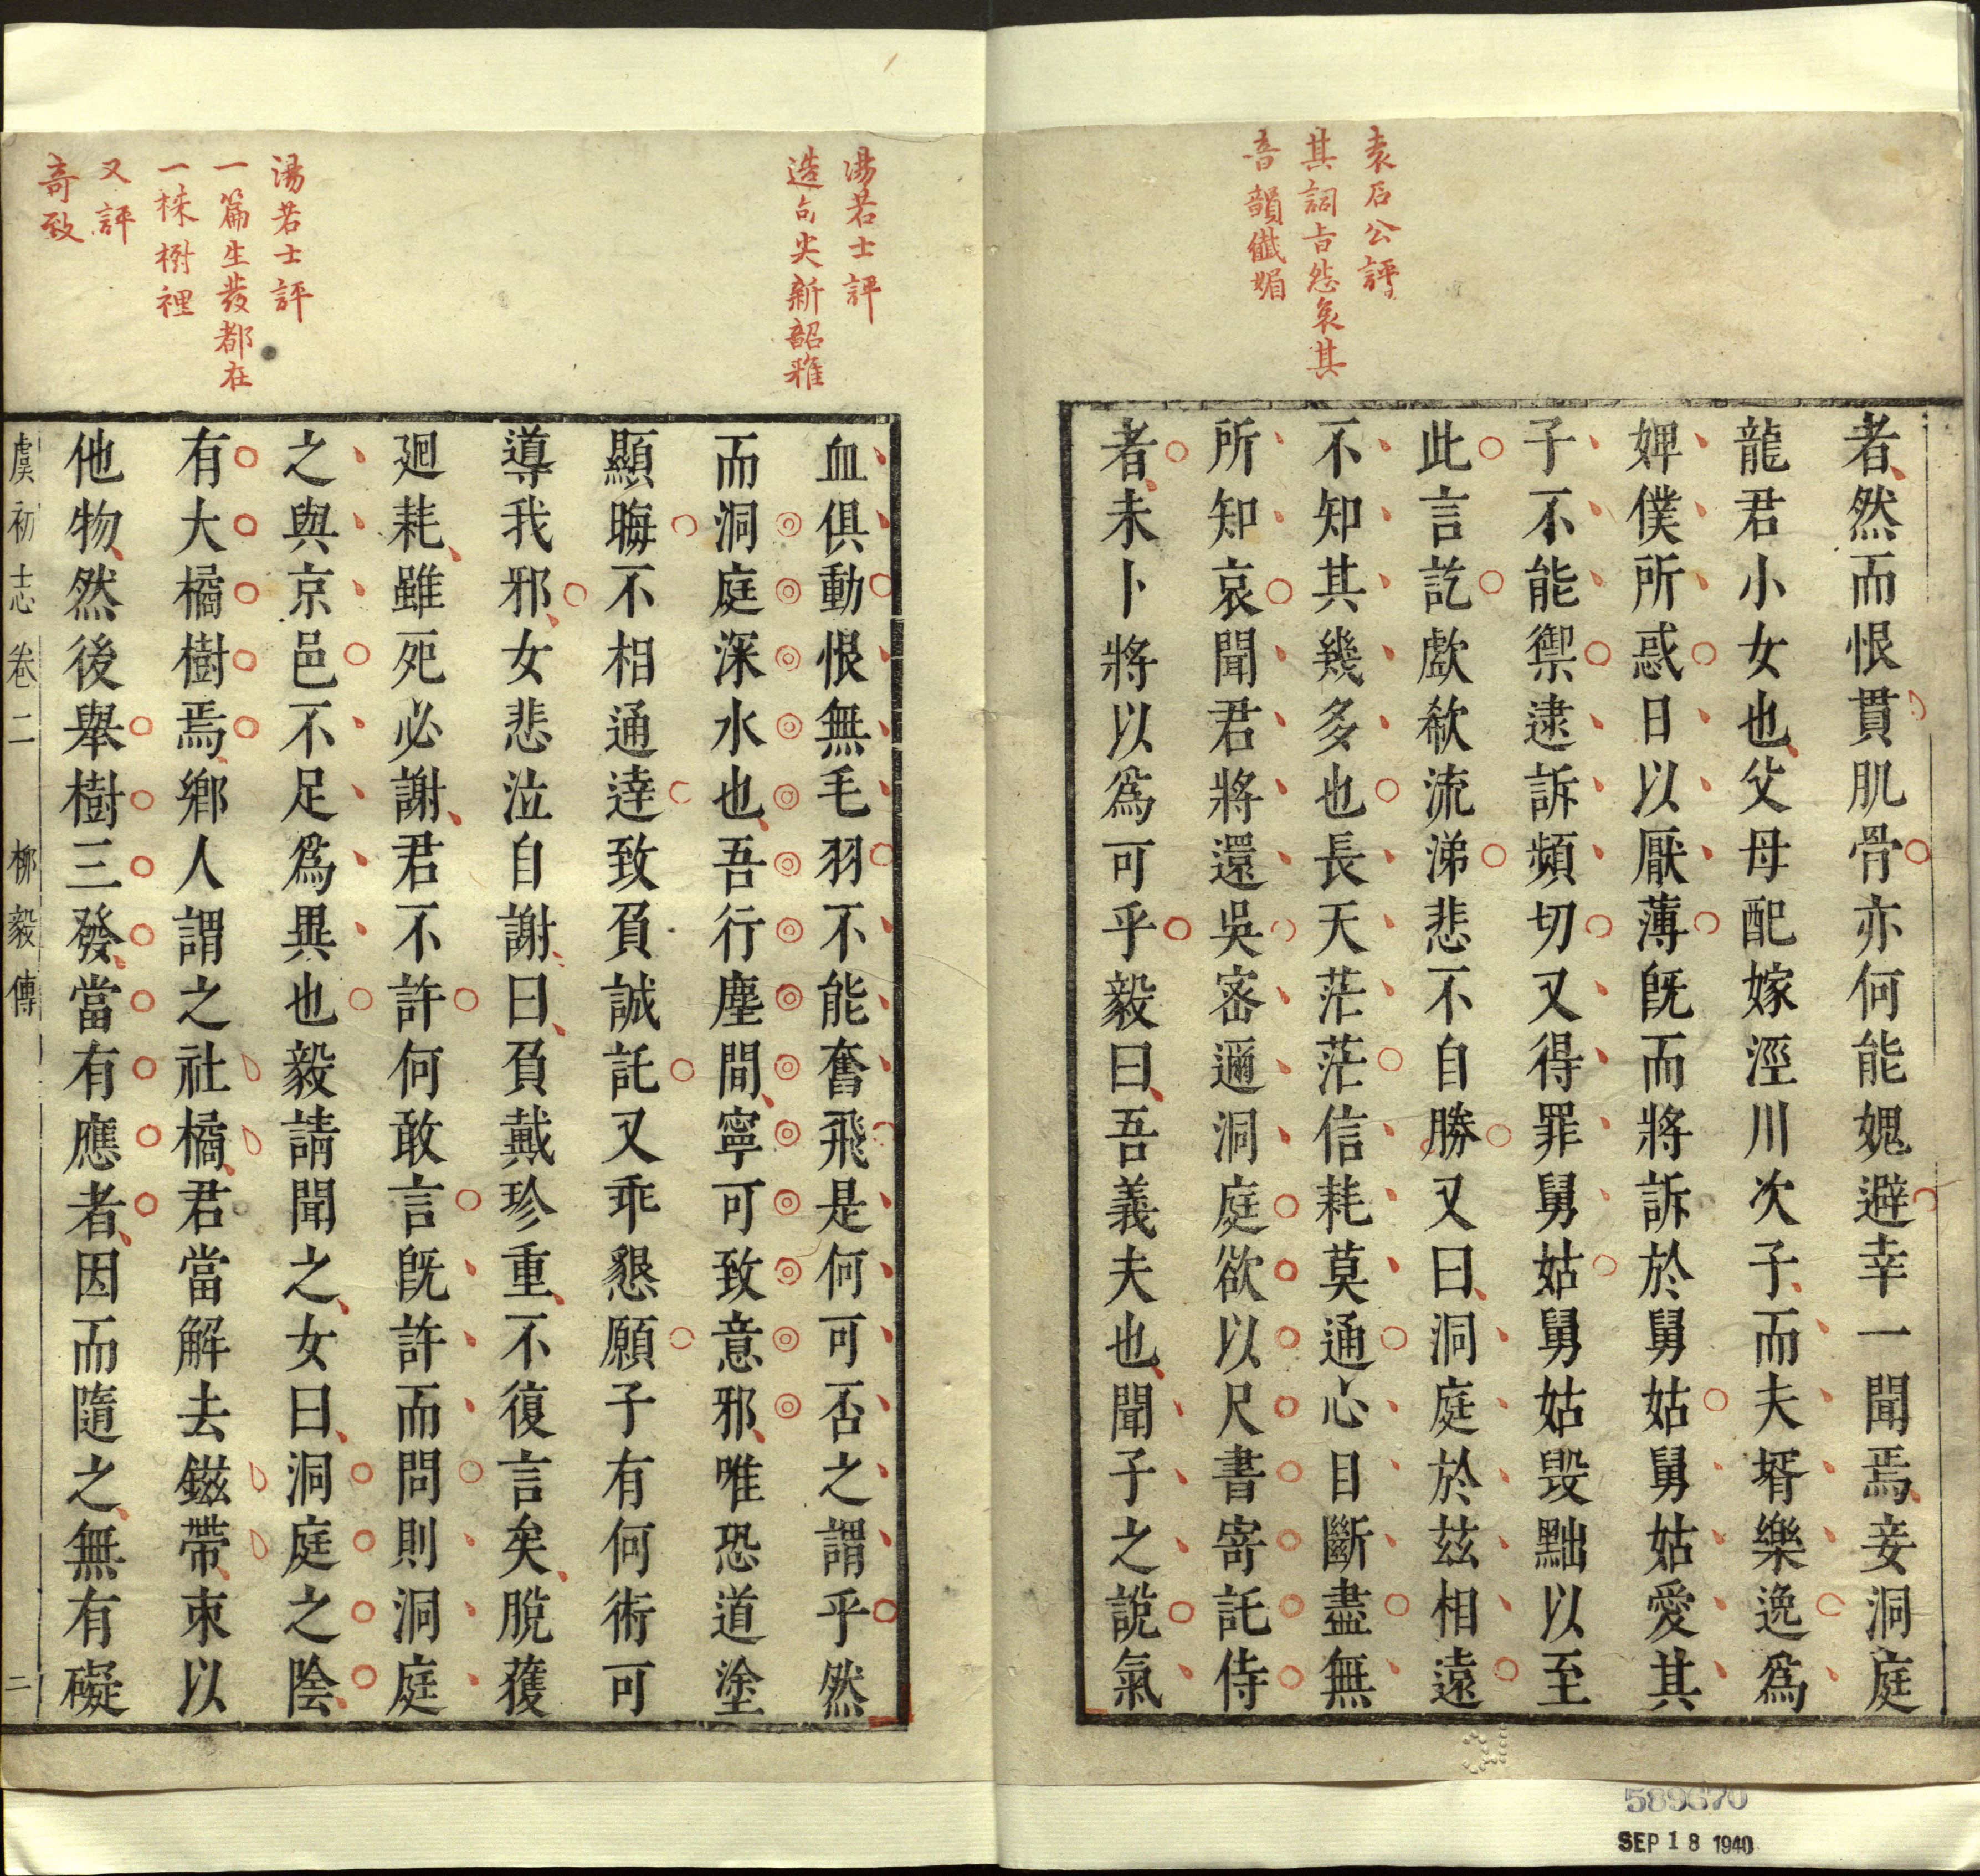 袁石公評
其詞旨怨哀其
音韻儎媚
者然而恨貫肌骨亦何能媿避幸一聞焉妾洞庭
龍君小女也父母配嫁涇川次子而夫壻樂逸爲
婢僕所惑日以厭薄旣而將訴於舅姑舅姑愛其
子不能禦逮訴頻切又得罪舅姑舅姑毁黜以至
此言訖歔欷流涕悲不自勝又曰洞庭於茲相遠
不知其幾多也長天茫茫信耗莫通心目斷盡無
所知哀聞君將還吳密邇洞庭欲以尺書寄託侍
者未卜將以爲可乎毅曰吾義夫也聞子之說氣
湯若士評
造句尖新韶雅
血俱動恨無毛羽不能奮飛是何可否之謂乎然
而洞庭深水也吾行塵間寧可致意邪唯恐道塗
顯晦不相通達致負誠託又乖懇願子有何術可
導我邪女悲泣自謝曰負戴珍重不復言矣脫獲
廻耗雖死必謝君不許何敢言旣許而問則洞庭
之與京邑不足爲異也毅請聞之女曰洞庭之陰
有大橘樹焉鄕人謂之社橘君當解去鎡帶束以
他物然後舉樹三發當有應者因而隨之無有礙
湯若士評
一篇生發都在
一棵樹裡
又評
奇致
虞初志 卷二 柳毅傳 二
589670
SEP 18 1940